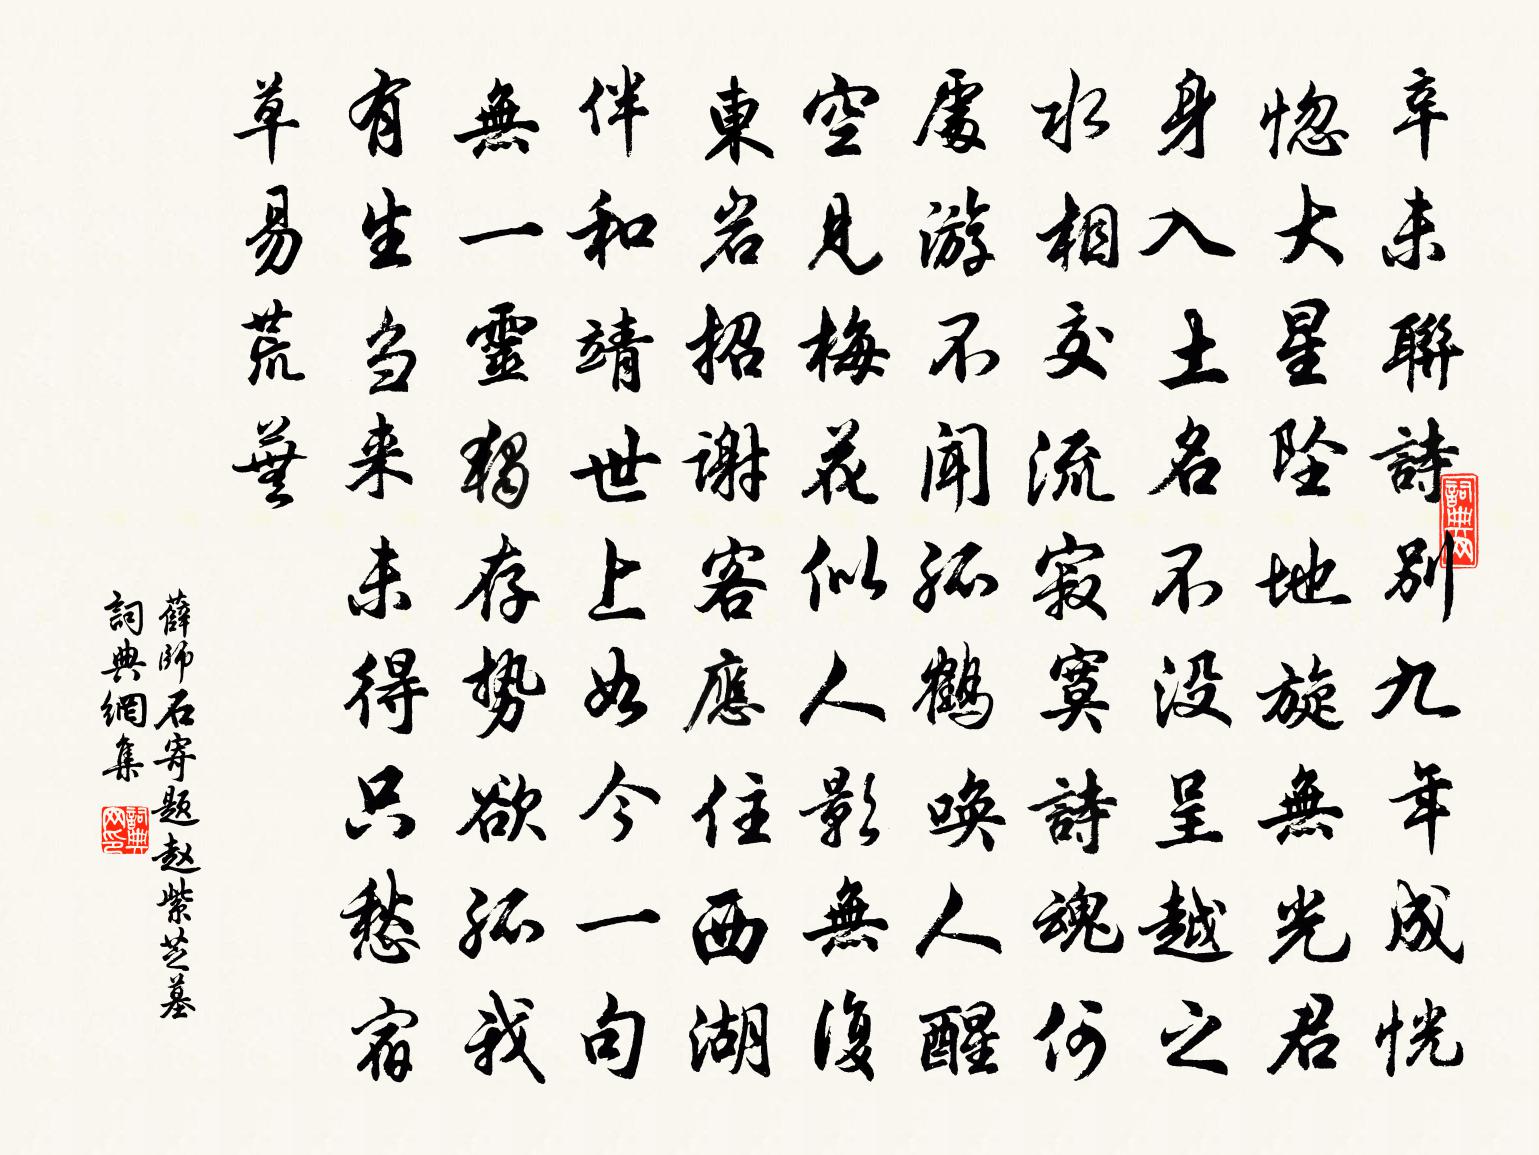 辛未聯詩別九年成恍
惚大星坠地旋無光君
身入土名不没呈越之
水相交流寂寞詩魂何
處游不闻孤鶴唤人醒
空見梅花似人影無復
東岩招谢客應住西湖
伴和靖世上如今一句
無一靈獨存势欲孤我
有生刍来未得只愁宿
草易荒蕪
薛師石寄题赵紫芝墓
詞典網集
詞典网
詞典网印